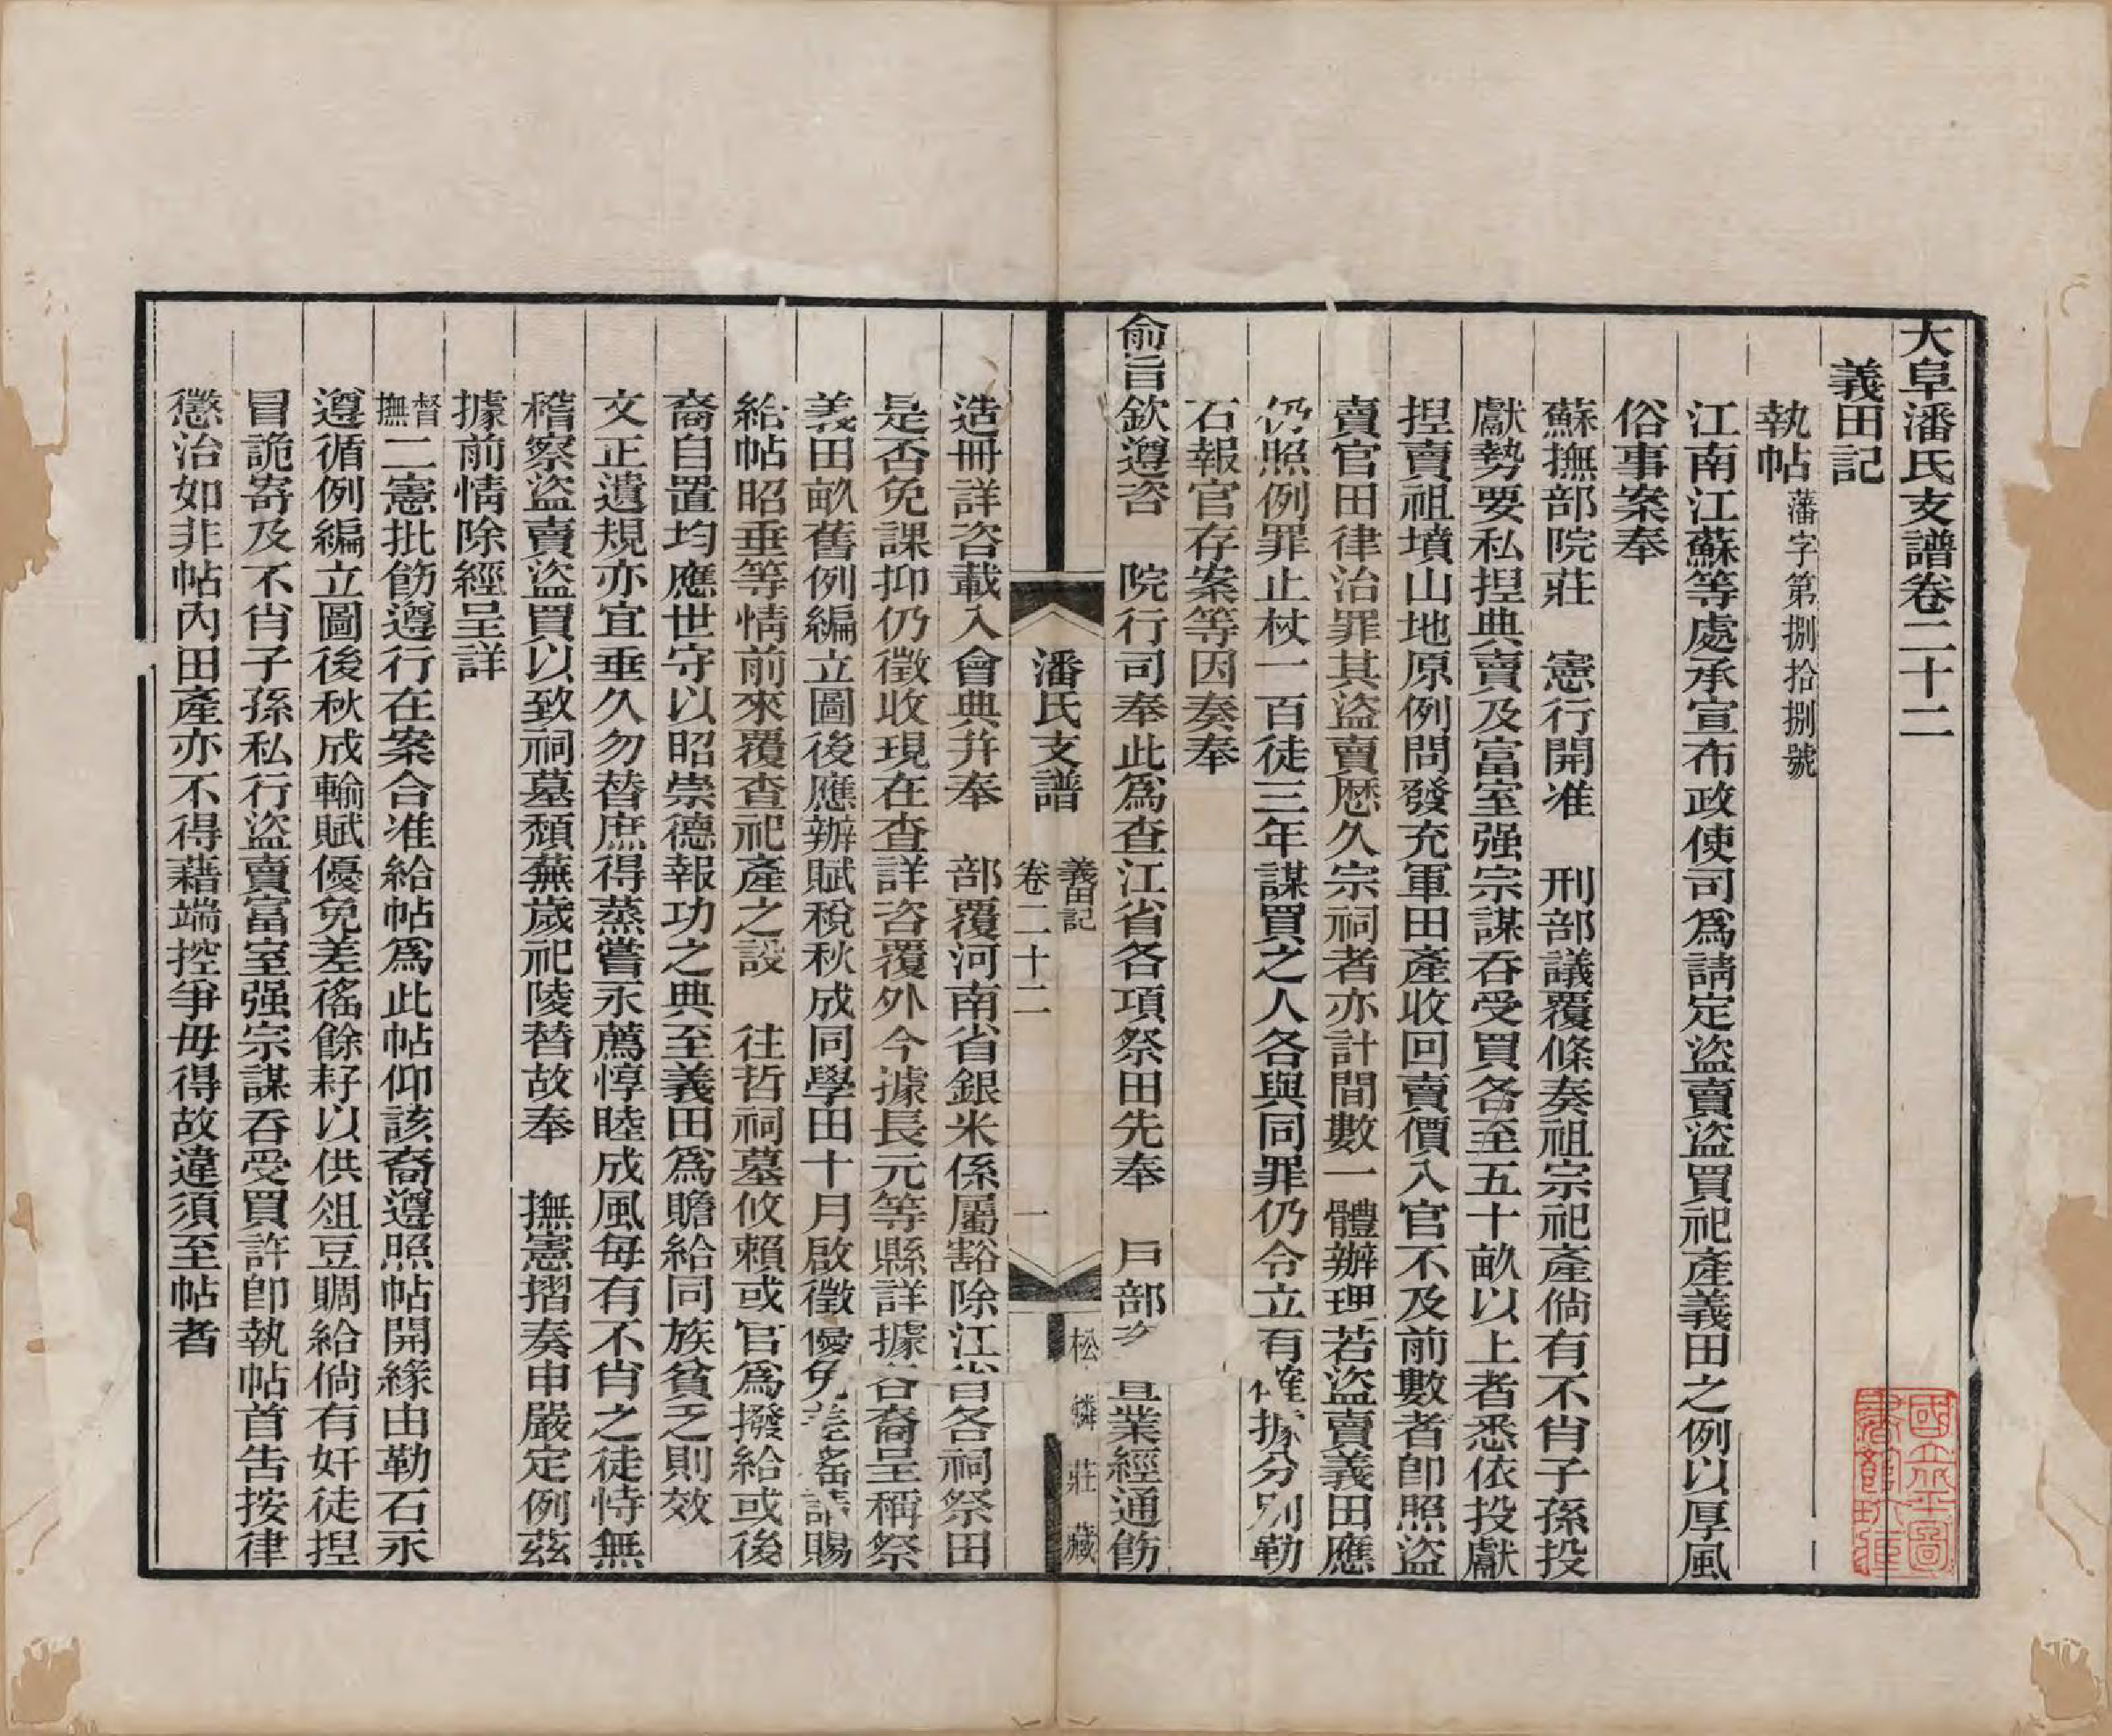 大阜潘氏支譜卷二十二
義田記
執帖藩字第捌拾捌號
江南江蘇等處承宣布政使司爲請定盜賣盜買祀產義田之例以厚風
俗事案奉
蘇撫部院莊　憲行開准　刑部議覆條奏祖宗祀產倘有不肖子孫投
獻勢要私捏典賣及富室强宗謀吞受買各至五十畝以上者悉依投獻
捏賣祖墳山地原例問發充軍田產收回賣價入官不及前數者卽照盜
賣官田律治罪其盜賣厯久宗祠者亦計間數一體辦理若盜賣義田應
仍照例罪止杖一百徒三年謀買之人各與同罪仍令立有確據分別勒
石報官存案等因奏奉
俞旨欽遵咨　院行司奉此爲查江省各項祭田先奉　戶部　業經通飭
潘氏支譜　義田記　卷二十二　一　松鱗莊藏
造冊詳咨載入會典幷奉　部覆河南省銀米係屬豁除江省各祠祭田
是否免課抑仍徵收現在查詳咨覆外今據長元等縣詳據各裔呈稱祭
義田畝舊例編立圖後應辦賦稅秋成同學田十月啟徵優免差徭請賜
給帖昭垂等情前來覆查祀產之設　往哲祠墓攸賴或官爲撥給或後
裔自置均應世守以昭崇德報功之典至義田爲贍給同族貧乏則效
文正遺規亦宜垂久勿替庶得蒸嘗永薦惇睦成風每有不肖之徒恃無
稽察盜賣盜買以致祠墓頹蕪歲祀陵替故奉　撫憲摺奏申嚴定例茲
據前情除經呈詳
督撫二憲批飭遵行在案合准給帖爲此帖仰該裔遵照帖開緣由勒石永
遵循例編立圖後秋成輸賦優免差徭餘耔以供俎豆賙給倘有奸徒捏
冒詭寄及不肖子孫私行盜賣富室强宗謀吞受買許卽執帖首告按律
懲治如非帖內田產亦不得藉端控爭毋得故違須至帖者